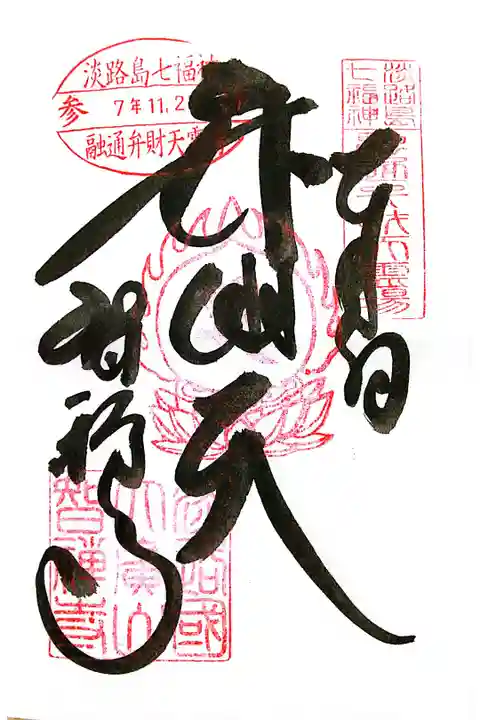 淡路島七福神
参 7年11.2
融通弁財天霊
淡路島
七福神
奉拝
弁財天
智禅寺
淡路國
智禪寺